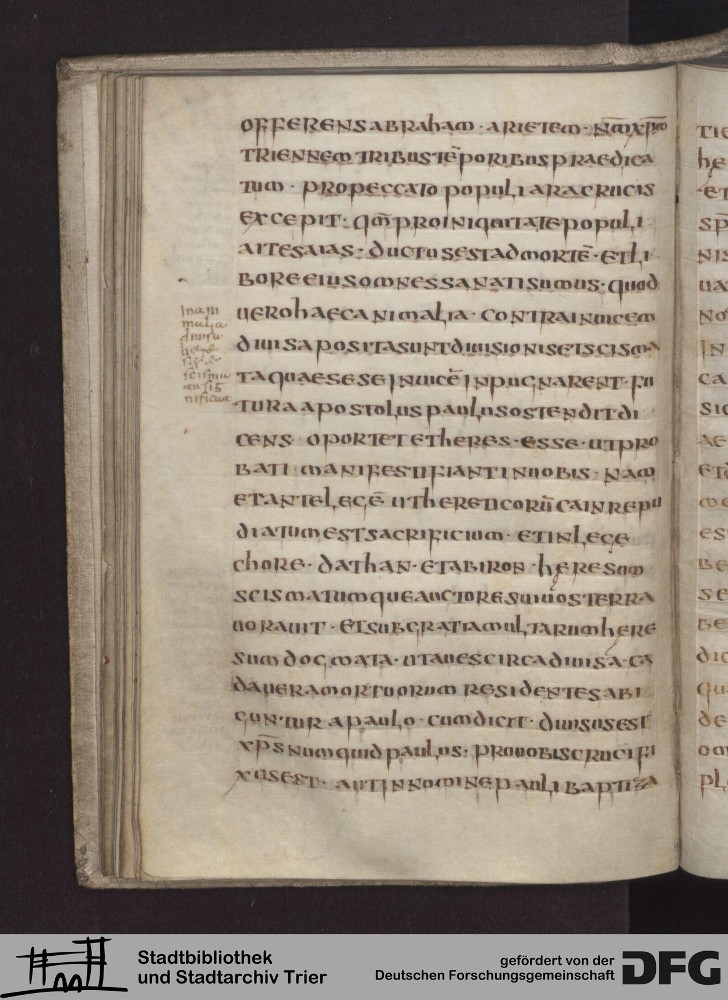 offerens abraham · arietem · nm̄ xpm̄
triennem tribus tēporibus praedica
tum · pro peccato populi ara crucis
excepit · qm̄ pro iniquitate populi
ait esaias · ductus est ad mortē · et li
bore eius omnes sanati sumus · quod
uero haec animalia · contra inuicem
diuisa posita sunt diuisionis et scisma
ta quae sese inuicē inpugnarent · fu
tura apostolus paulus ostendit di
cens oportet et heres · esse · ut pro
bati manifesti fiant in uobis · nam
et ante legē ut hereticorū cain repu
diatum est sacrificium · et in lege
chore · dathan · et abiron · heresum
scismatumque auctores uiuos terra
uorauit · et sub gratia multarum here
sum dogmata · ut aues circa diuisa · ca
dauera mortuorum residentes abi
guntur a paulo · cum dicit · diuisus est
xp̄s numquid paulus · pro uobis crucifi
xus est · aut in nomine pauli baptiza
In ani
malia
diuisa
scisma
nificat
Stadtbibliothek
und Stadtarchiv Trier
gefördert von der
Deutschen Forschungsgemeinschaft
DFG